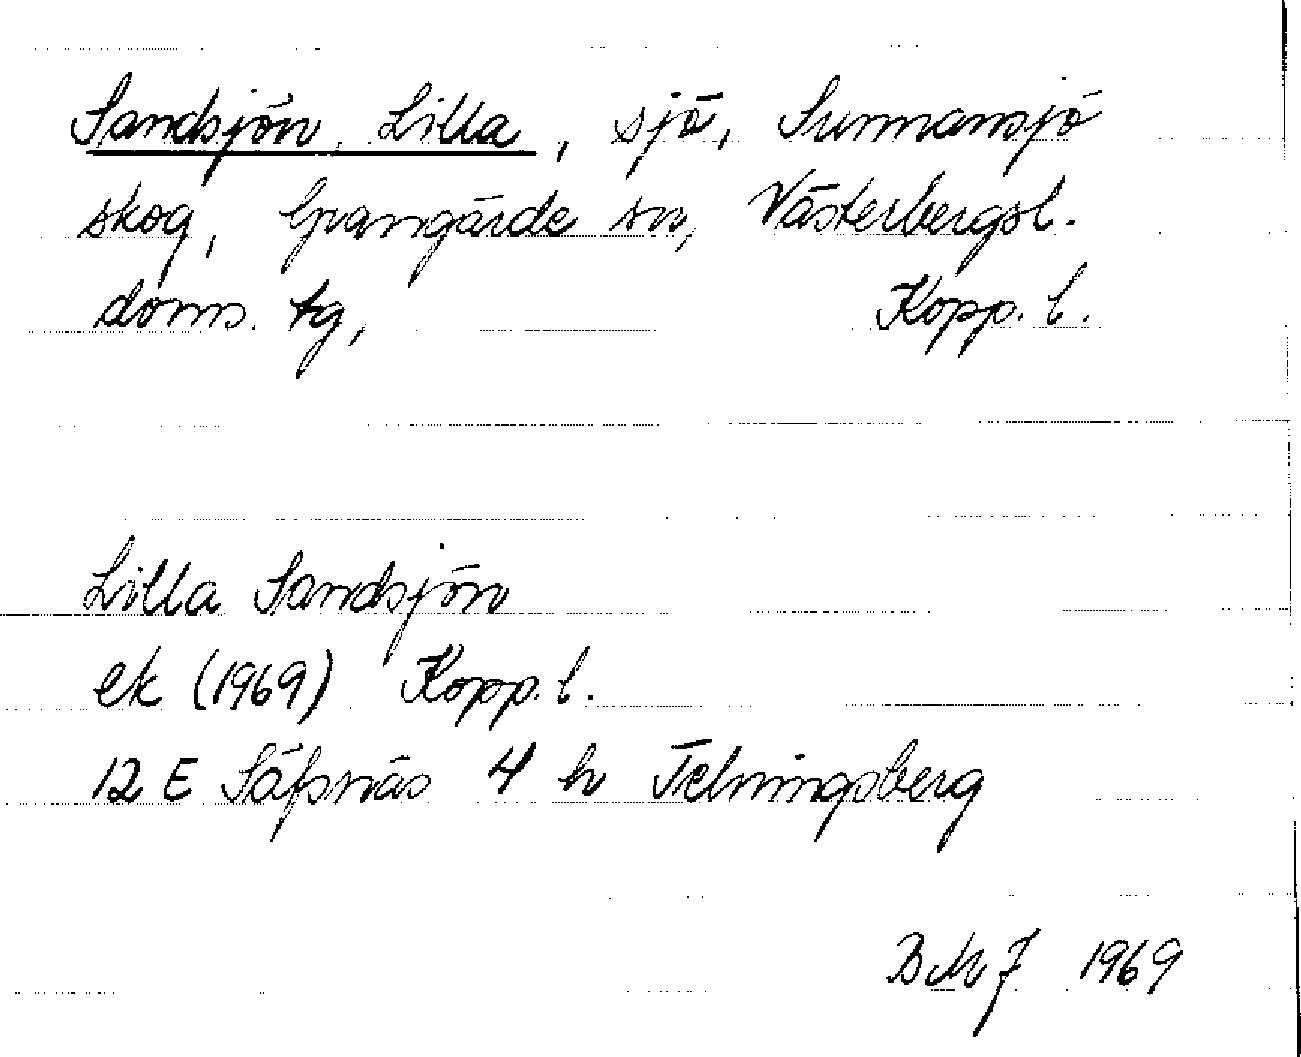 Sandsjön, Lilla, sjö, Sunnansjö
skog, Grangärde sn, Västerbergsl.
doms. tg, Kopp. l.
Lilla Sandsjön
ek (1969) Kopp. l.
12 E Säfsnäs 4 h Telningsberg
BMJ 1969